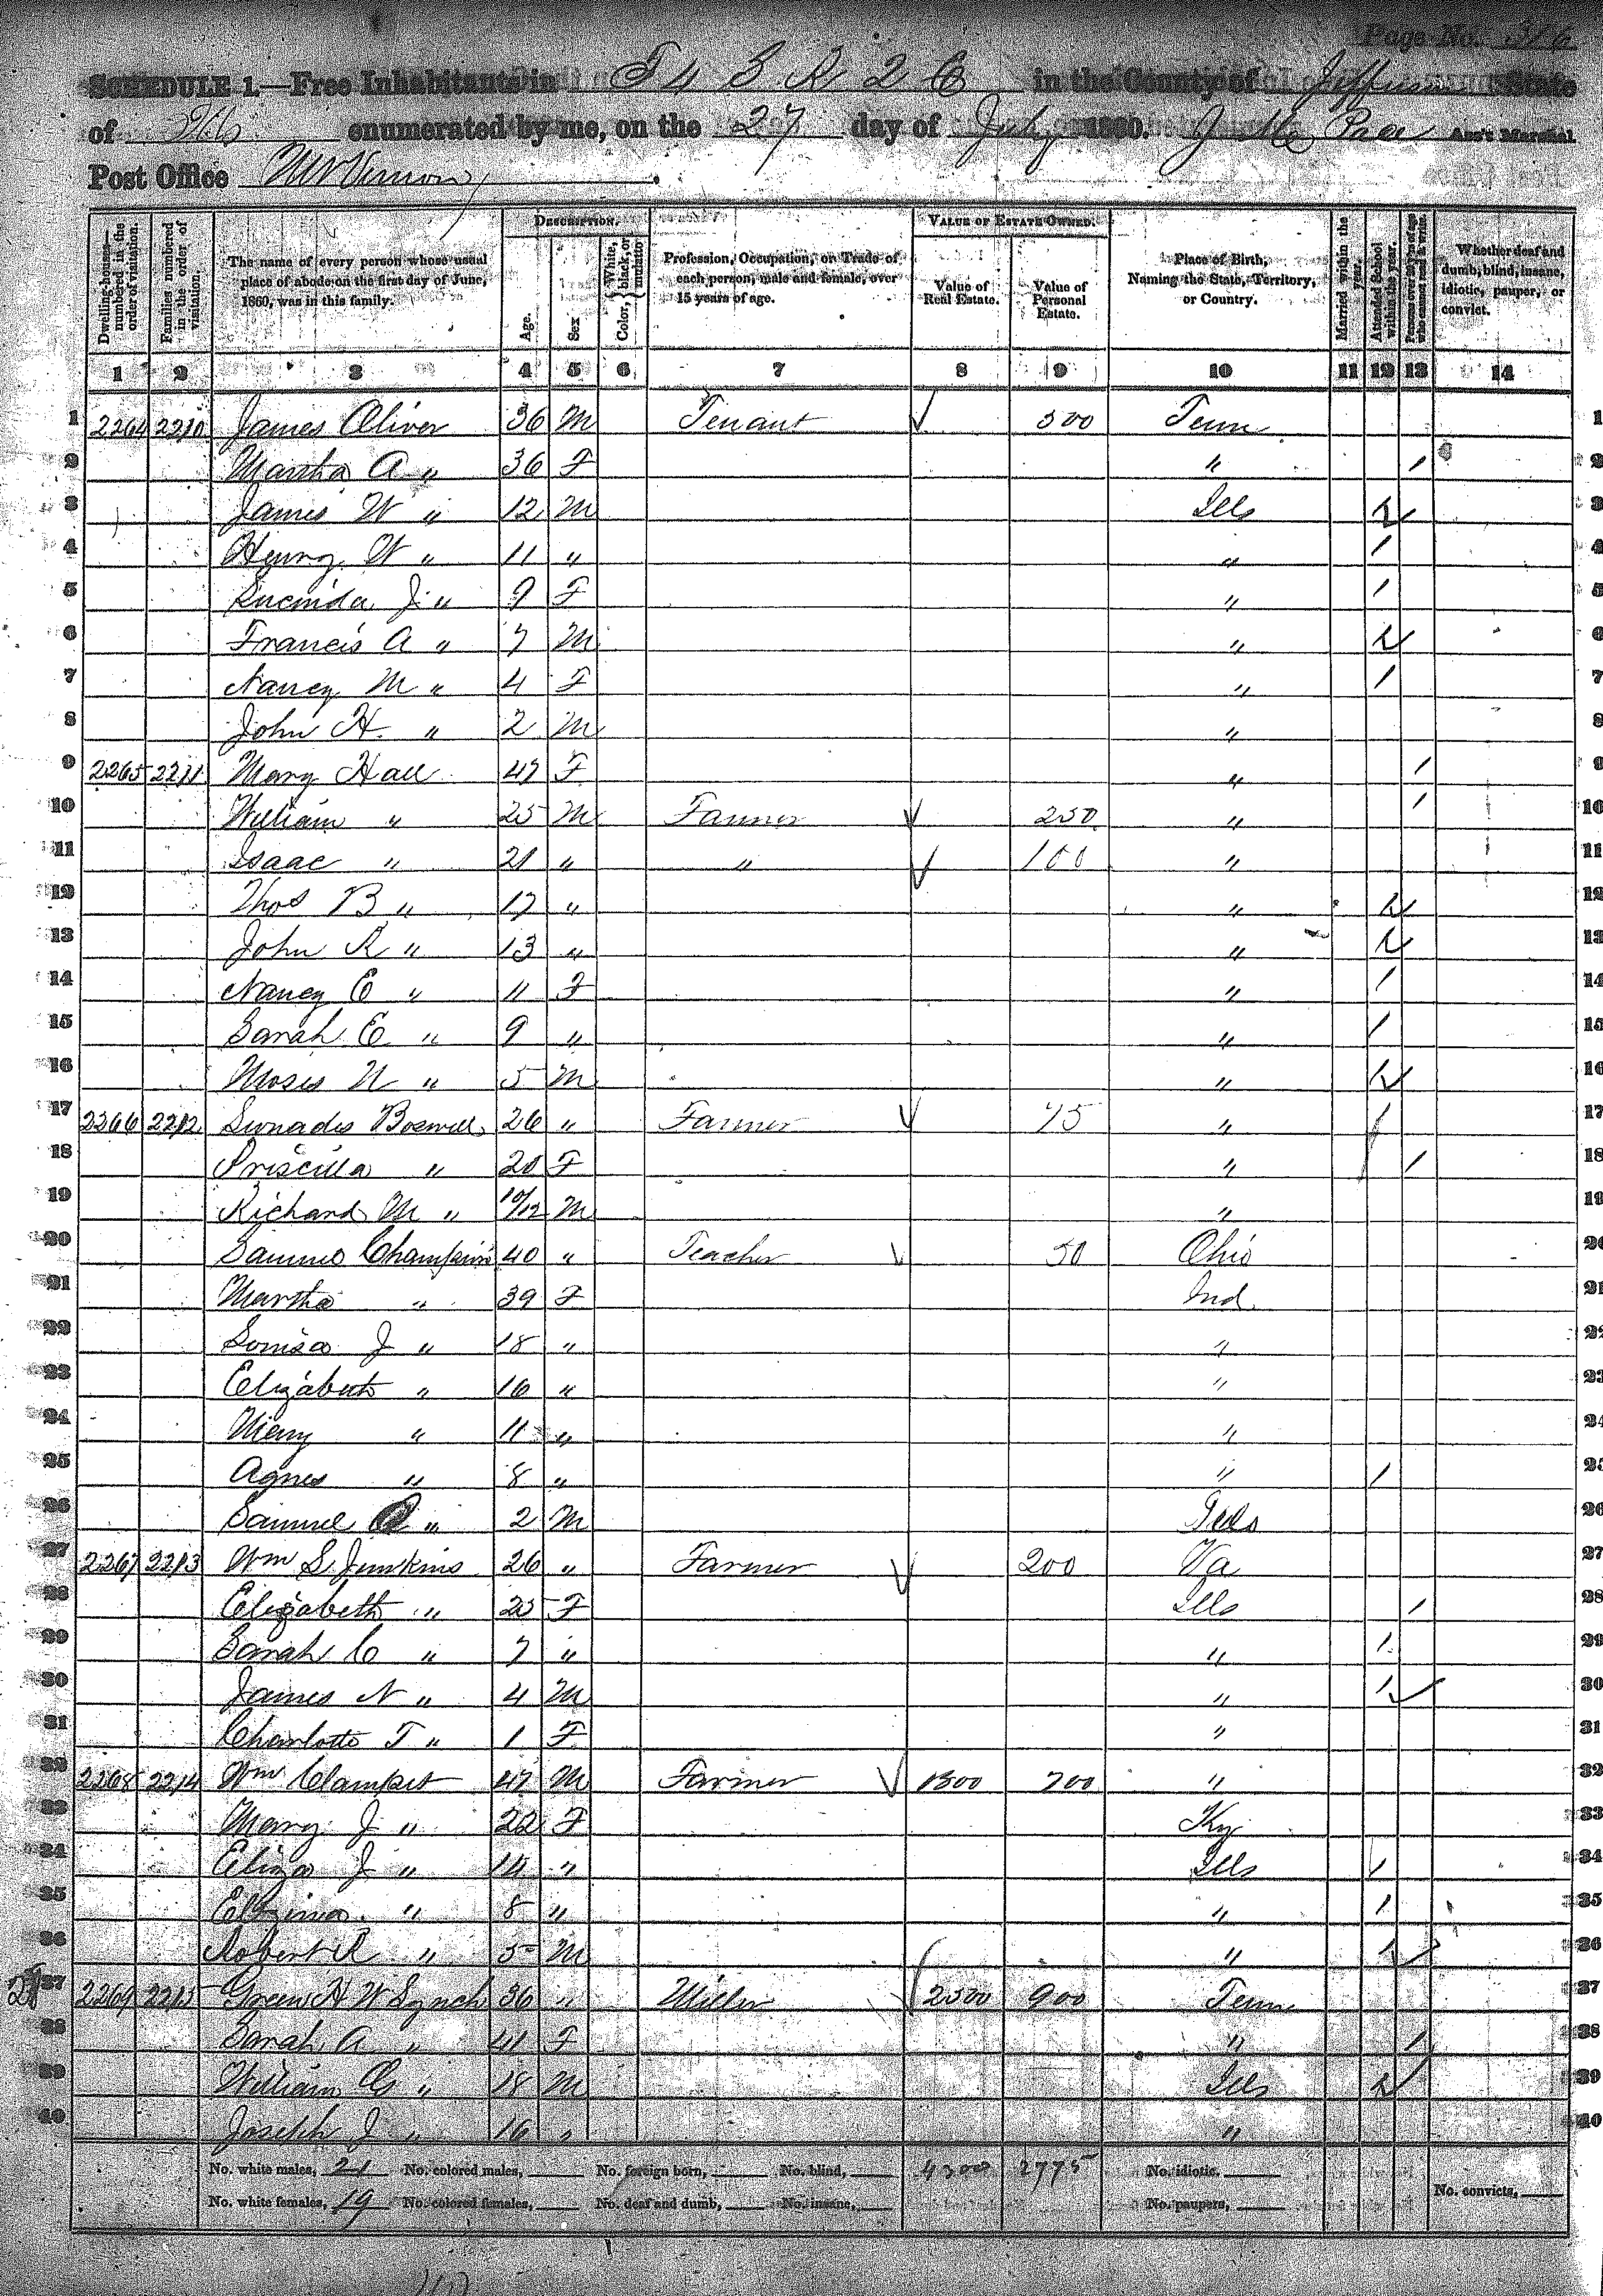 Page No. 316
SCHEDULE 1.—Free Inhabitants in T 4 S R 2 E in the County of Jefferson State
of Ills enumerated by me, on the 27 day of July 1860. J Mc Pace Ass't Marshal
Post Office Mt Vernon
Dwelling-houses—numbered in the order of visitation. Families numbered in the order of visitation. The name of every person whose usual place of abode on the first day of June, 1860, was in this family. DESCRIPTION. Age. Sex Color, White, black, or mulatto Profession, Occupation, or Trade of each person, male and female, over 15 years of age. VALUE OF ESTATE OWNED. Value of Real Estate. Value of Personal Estate. Place of Birth, Naming the State, Territory, or Country. Married within the year. Attended School within the year. Persons over 20 y'rs of age who cannot read & write. Whether deaf and dumb, blind, insane, idiotic, pauper, or convict.
1 2 3 4 5 6 7 8 9 10 11 12 13 14
1 2264 2210 James Oliver 36 M Tenant 300 Tenn 1
2 Martha A " 36 F " / 2
3 James W " 12 M Ills / 3
4 Henry W " 11 " " / 4
5 Lucinda J " 9 F " / 5
6 Francis A " 7 M " / 6
7 Nancy M " 4 F " / 7
8 John H " 2 M " 8
9 2265 2211 Mary Hall 47 F " / 9
10 William " 25 M Farmer 250 " / 10
11 Isaac " 21 " " 100 " 11
12 Thos B " 17 " " / 12
13 John R " 13 " " / 13
14 Nancy E " 11 F " / 14
15 Sarah E " 9 " " / 15
16 Moses N " 5 M " / 16
17 2266 2212 Boswell 26 " Farmer 75 " / 17
18 Priscilla " 20 F " / 18
19 Richard M " 10/12 M " 19
20 Champion 40 " Teacher 50 Ohio 20
21 Martha " 39 F Ind 21
22 Louisa J " 18 " " 22
23 Elizabeth " 16 " " 23
24 Mary " 11 " " 24
25 Agnes " 8 " " / 25
26 Samuel " 2 M Ills 26
27 2267 2213 Wm S Junkins 26 " Farmer 200 Va 27
28 Elizabeth " 25 F Ills / 28
29 Sarah C " 7 " " / 29
30 James N " 4 M " / 30
31 Charlotte T " 1 F " 31
32 2268 2214 Wm Clampet 47 M Farmer 1800 700 " 32
33 Mary J " 22 F Ky 33
34 Eliza J " 14 " Ills / 34
35 " 8 " " / 35
36 Robert R " 5 M " / 36
37 2269 2215 Green H W Lynch 36 " Miller 2500 900 Tenn 37
38 Sarah A " 41 F " / 38
39 William G " 18 M Ills / 39
40 Joseph J " 16 " " 40
No. white males, 21 No. colored males, No. foreign born, No. blind, 4300 2775 No. idiotic,
No. white females, 19 No. colored females, No. deaf and dumb, No. insane, No. paupers, No. convicts,